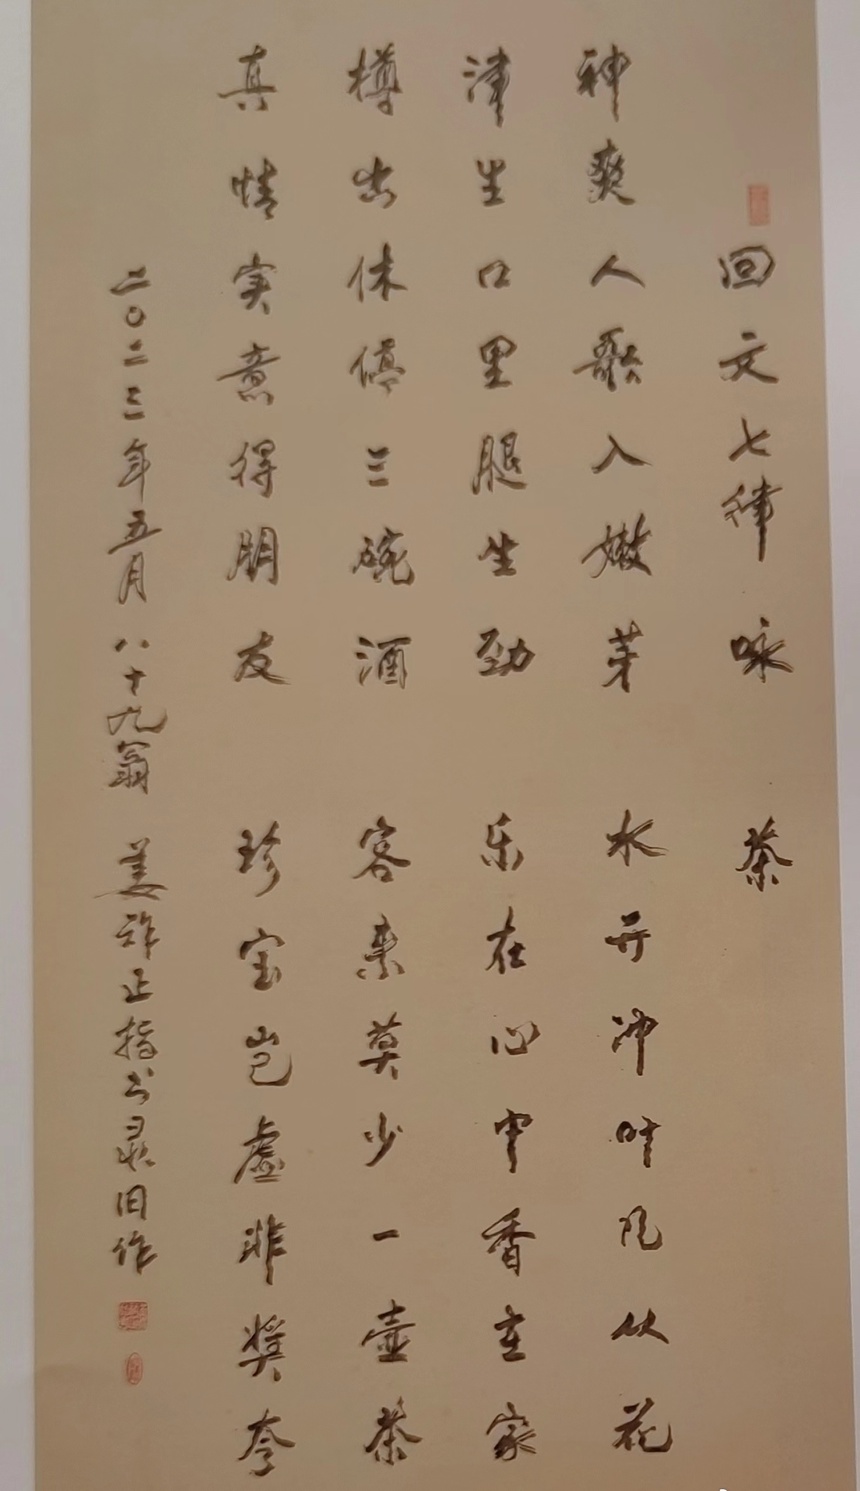 回文七律咏 茶
神爽人歌入嫩芽 水开冲叶凡从花
津生口里腿生劲 乐在心中香主家
樽出休停三碗酒 客来莫少一壶茶
真情实意得朋友 珍宝岂虚非奖夸
二〇二三年五月八十九翁 姜祚正指书录旧作